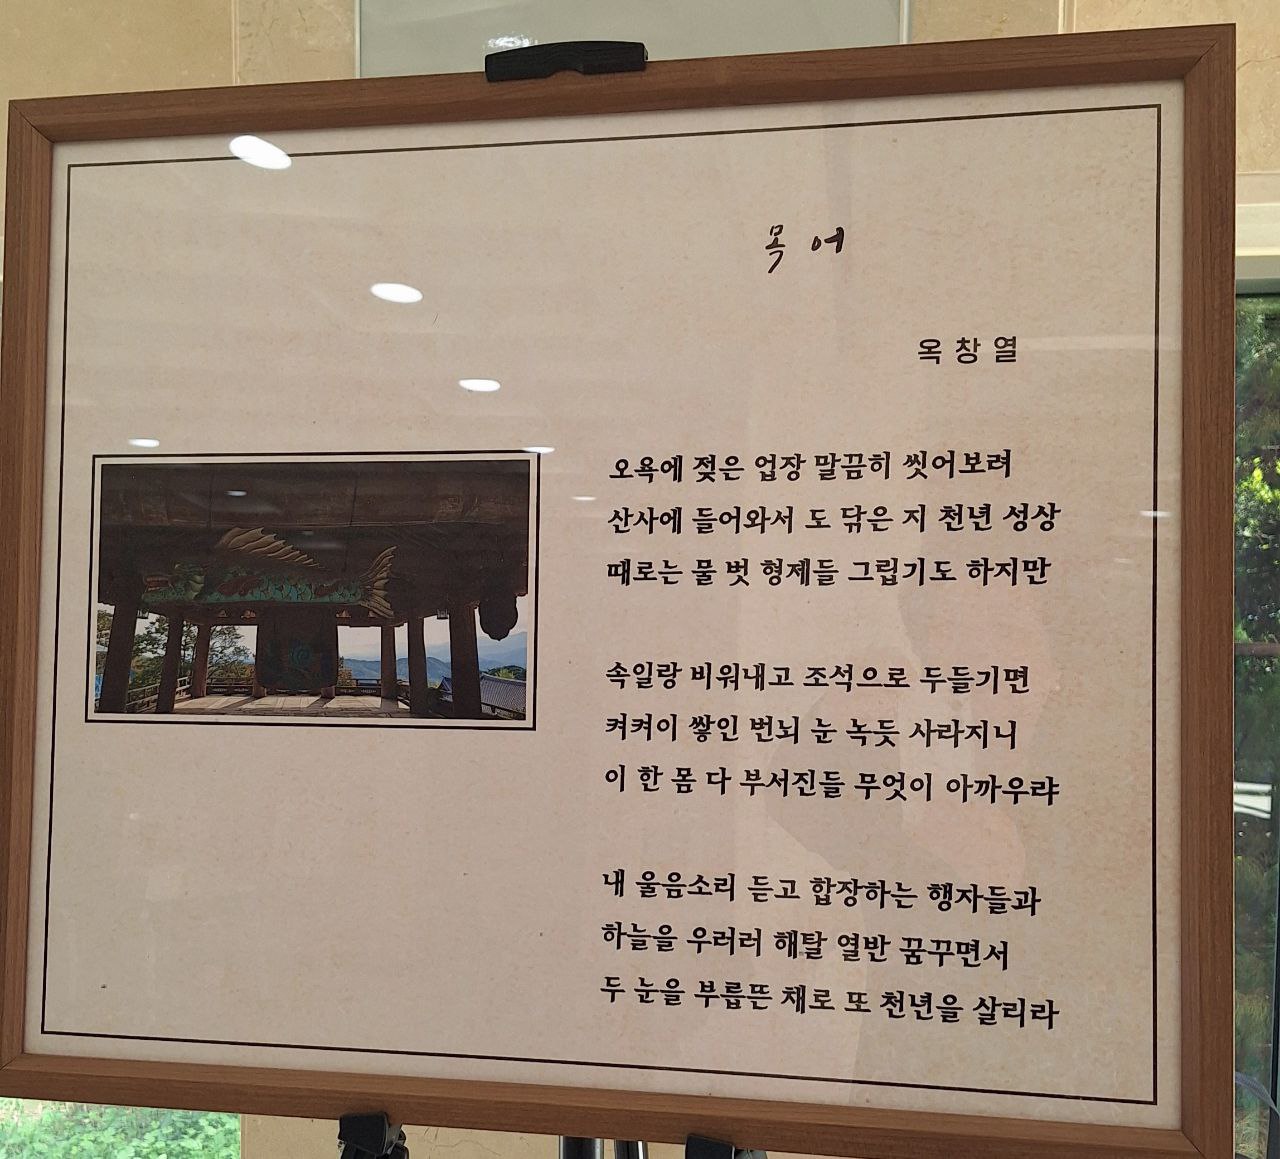 목어
옥창열
오욕에 젖은 업장 말끔히 씻어보려
산사에 들어와서 도 닦은 지 천년 성상
때로는 물 벗 형제들 그립기도 하지만
속일랑 비워내고 조석으로 두들기면
켜켜이 쌓인 번뇌 눈 녹듯 사라지니
이 한 몸 다 부서진들 무엇이 아까우랴
내 울음소리 듣고 합장하는 행자들과
하늘을 우러러 해탈 열반 꿈꾸면서
두 눈을 부릅뜬 채로 또 천년을 살리라